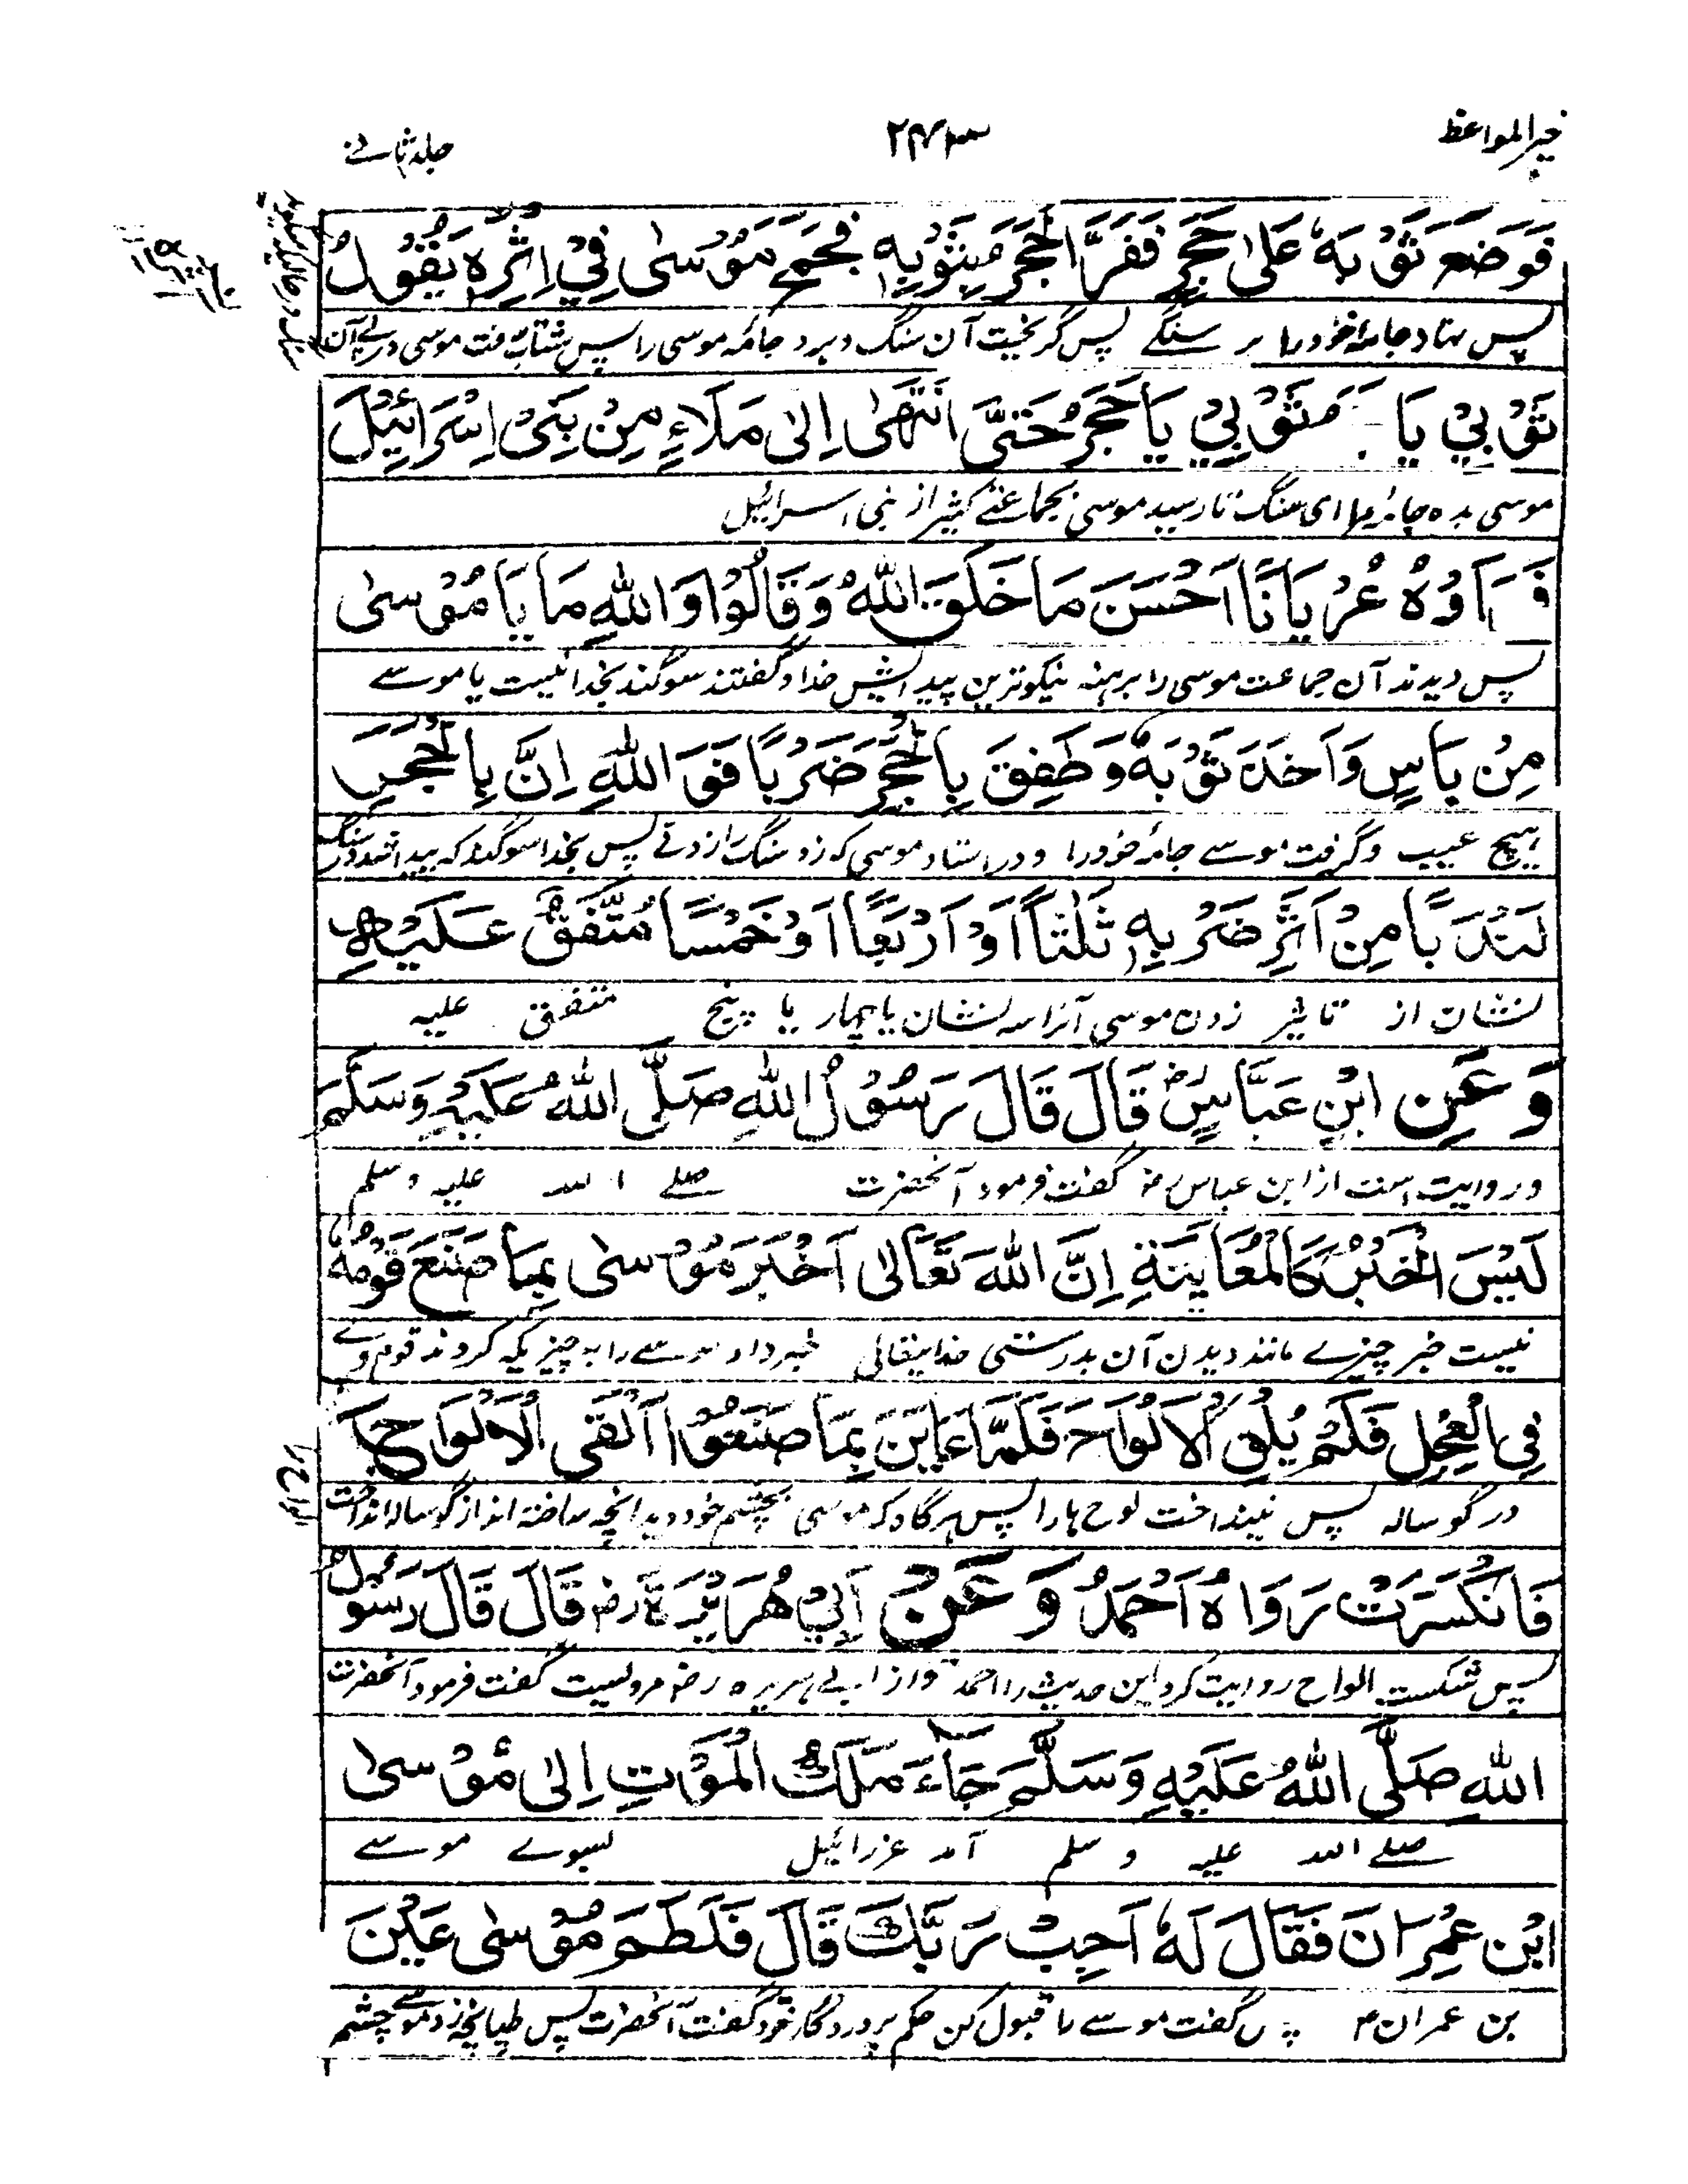 خیر المواعظ ۲۴۳ جلد ثانے
فَوَضَعَ ثَوْبَهٗ عَلٰی حَجَرٍ فَفَرَّ الْحَجَرُ بِثَوْبِهٖ فَجَمَحَ مُوْسٰی فِیْ اِثْرِهٖ یَقُوْلُ
پس نهاد جامهٔ خود را بر سنگے پس گریخت آن سنگ و برد جامهٔ موسی را پس بشتاب رفت موسی در پے آن
ثَوْبِیْ یَا ثَوْبِیْ یَا حَجَرُ حَتّٰی انْتَهٰی اِلٰی مَلَاءٍ مِنْ بَنِیْ اِسْرَائِیْلَ
موسی بده جامهٔ ما ای سنگ تا رسید موسی بجماعتے کثیر از بنی اسرائیل
فَرَاَوْهُ عُرْیَانًا اَحْسَنَ مَا خَلَقَ اللهُ وَقَالُوْا وَاللهِ مَا یَا مُوْسٰی
پس دیدند آن جماعت موسی را برهنه نیکوترین پیدایش خدا و گفتند سوگند بخدا نیست یا موسے
مِنْ بَاسٍ وَاَخَذَ ثَوْبَهٗ وَطَفِقَ بِالْحَجَرِ ضَرْبًا فَوَ اللهِ اِنَّ بِالْحَجَرِ
هیچ عیب و گرفت موسے جامهٔ خود را و در استاد موسی که زد سنگ را زدنے پس بخدا سوگند که پیدا شد در سنگ
لَنَدَبًا مِنْ اَثَرِ ضَرْبِهٖ ثَلٰثًا اَوْ اَرْبَعًا اَوْ خَمْسًا مُتَّفَقٌ عَلَیْهِ
نشان از تاثیر زدن موسی آنرا سه نشان یا چهار یا پنج متفق علیه
وَعَنِ ابْنِ عَبَّاسٍ رض قَالَ قَالَ رَسُوْلُ اللهِ صَلَّی اللهُ عَلَیْهِ وَسَلَّمَ
و روایت است از ابن عباس رض گفت فرمود آنحضرت صلے الله علیه و سلم
لَیْسَ الْخَبَرُ کَالْمُعَایَنَةِ اِنَّ اللهَ تَعَالٰی اَخْبَرَ مُوْسٰی بِمَا صَنَعَ قَوْمُهٗ
نیست خبر چیزے مانند دیدن آن بدرستی خدایتعالی خبر داد موسے را به چیزیکه کردند قوم وے
فِی الْعِجْلِ فَلَمْ یُلْقِ الْاَلْوَاحَ فَلَمَّا عَایَنَ بِمَا صَنَعُوْا اَلْقَی الْاَلْوَاحَ
در گوساله پس نینداخت لوح ها را پس هرگاه که موسی بچشم خود دید انچه ساخته اند از گوساله انداخت
الواح را
فَانْکَسَرَتْ رَوَاهُ اَحْمَدُ وَعَنْ اَبِیْ هُرَیْرَةَ رض قَالَ قَالَ رَسُوْلُ
پس شکست الواح روایت کرد این حدیث را احمد و از ابے هریره رض مرویست گفت فرمود آنحضرت
اللهِ صَلَّی اللهُ عَلَیْهِ وَسَلَّمَ جَآءَ مَلَكُ الْمَوْتِ اِلٰی مُوْسٰی
صلے الله علیه و سلم آمد عزرائیل بسوے موسے
ابْنِ عِمْرَانَ فَقَالَ لَهٗ اَجِبْ رَبَّكَ قَالَ فَلَطَمَ مُوْسٰی عَیْنَ
بن عمران گفت موسے را قبول کن حکم پروردگار خود گفت آنحضرت پس طپانچه زد موسے چشم